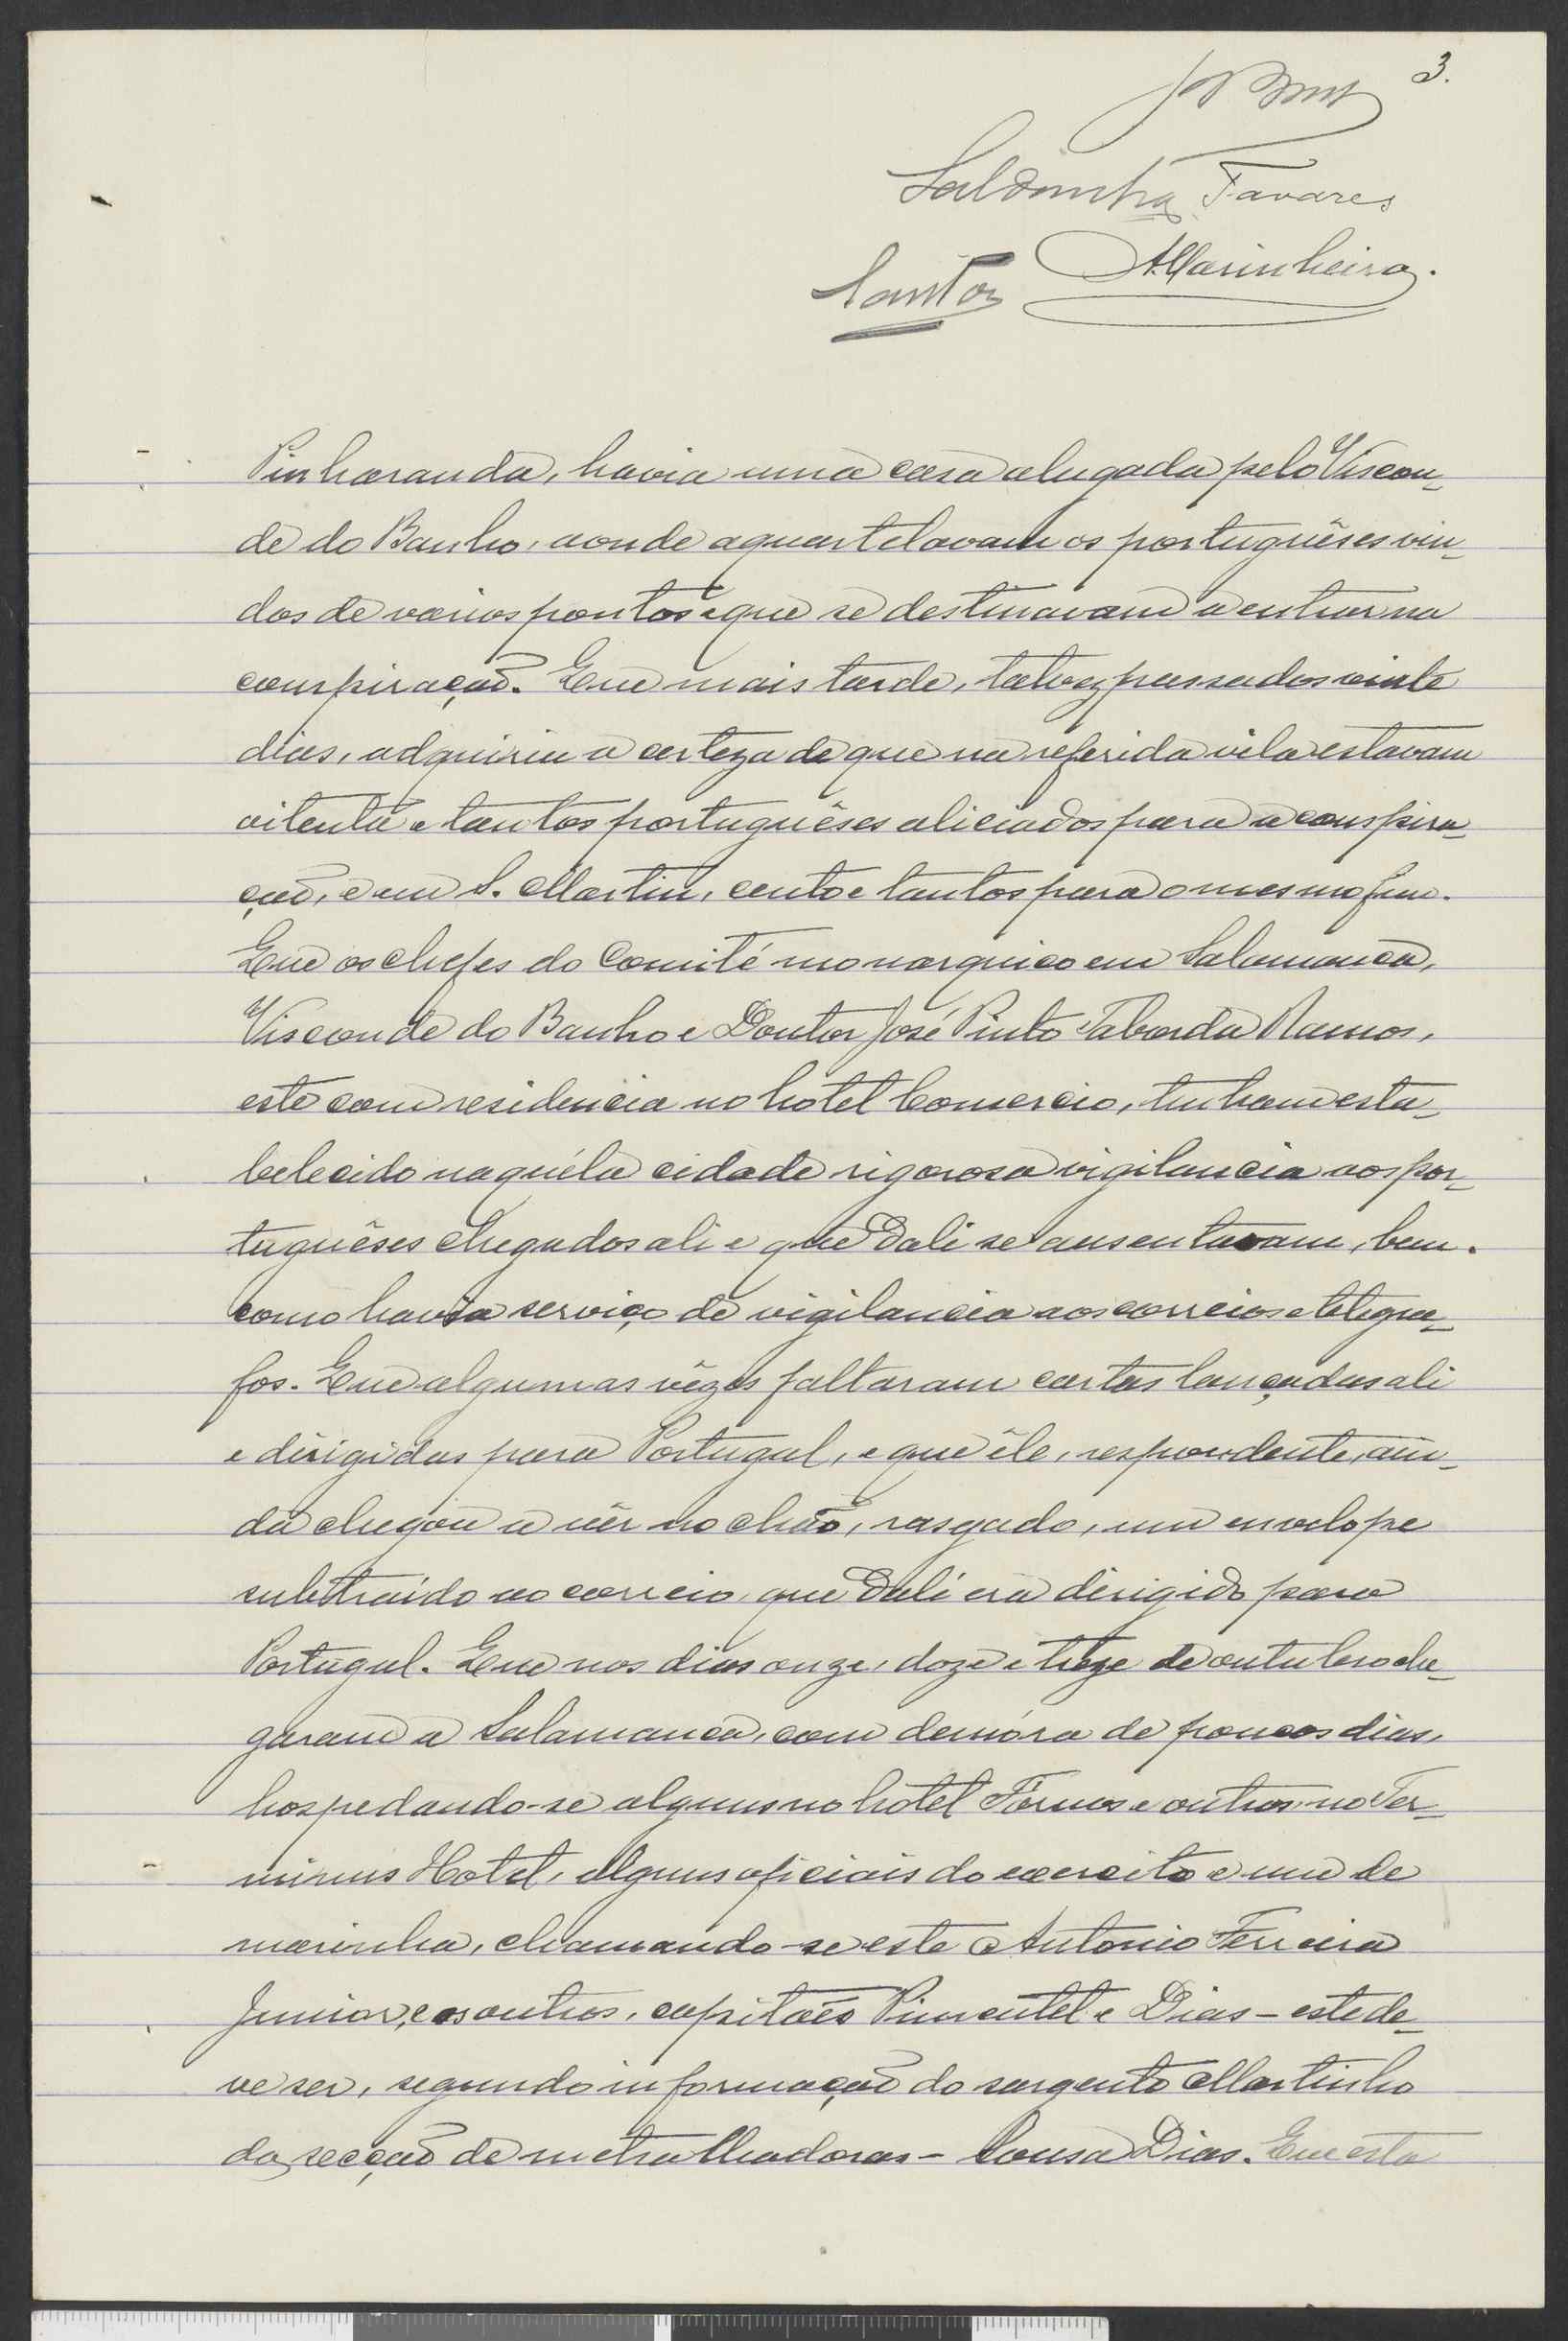 3.
Saldanha Tavares
Santos AMarinheiro.
Pinharanda, havia uma casa alugada pelo Viscon-
de do Banho, aonde aquartelavam os portuguêses vin-
dos de varios pontos e que se destinavam a entrar na
conspiração. Que mais tarde, talvez passados vinte
dias, adquiriu a certeza de que na referida vila estavam
oitenta e tantos portuguêses aliciados para a conspira-
ção, e em S. Martin, cento e tantos para o mesmo fim.
Que os chefes do Comité monarquico em Salamanca,
Visconde do Banho e Doutor José Pinto Taborda Ramos,
este com residencia no hotel Comercio, tinham esta-
belecido naquéla cidade rigorosa vigilancia aos por-
tuguêses chegados ali e que dali se ausentavam, bem
como havia serviço de vigilancia aos correios e telegra-
fos. Que algumas vêzes faltaram cartas lançadas ali
e dirigidas para Portugal, e que êle, respondente, ain-
da chegou a vêr no chão, rasgado, um envelope
subtraído ao correio, que dali era dirigido para
Portugal. Que nos dias onze, doze e treze de outubro che-
garam a Salamanca, com demóra de poucos dias,
hospedando-se alguns no hotel Térmos e outros no Ter-
minus Hotel, alguns oficiais do exercito e um de
marinha, chamando-se este Antonio Ferreira
Junior, e os outros, capitães Pimentel e Dias - este de-
ve ser, segundo informação do sargento Martinho
da secção de metralhadoras - Sousa Dias. Que esta